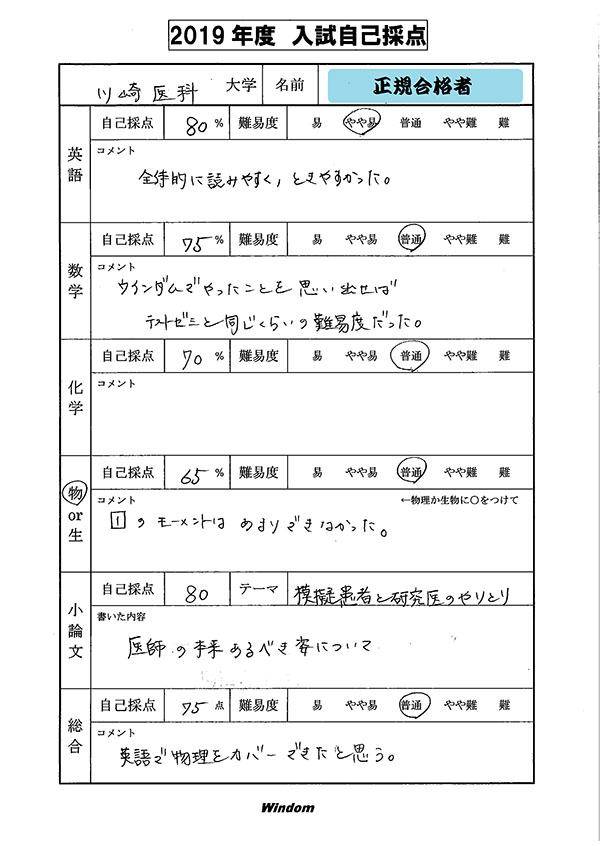 2019年度 入試自己採点
川崎医科 大学 名前 正規合格者
英語 自己採点 80 % 難易度 易 やや易 普通 やや難 難
コメント
全体的に読みやすく,ときやすかった。
数学 自己採点 75 % 難易度 易 やや易 普通 やや難 難
コメント
ウインダムでやったことを思い出せば
テストゼミと同じくらいの難易度だった。
化学 自己採点 70 % 難易度 易 やや易 普通 やや難 難
コメント
物or生 自己採点 65 % 難易度 易 やや易 普通 やや難 難
コメント ←物理か生物に〇をつけて
1のモーメントはあまりできなかった。
小論文 自己採点 80 テーマ 模擬患者と研究医のやりとり
書いた内容
医師の本来あるべき姿について
総合 自己採点 75 点 難易度 易 やや易 普通 やや難 難
コメント
英語で物理をカバーできたと思う。
Windom